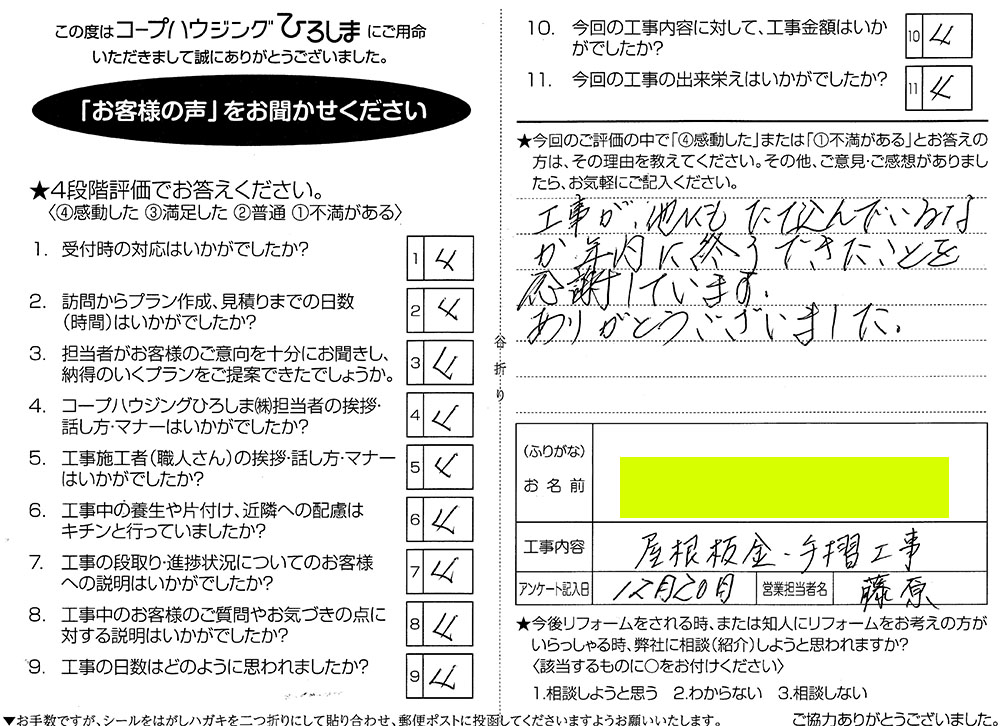 この度はコープハウジングひろしまにご用命
いただきまして誠にありがとうございました。
「お客様の声」をお聞かせください
★4段階評価でお答えください。
〈④感動した ③満足した ②普通 ①不満がある〉
1. 受付時の対応はいかがでしたか? 1 4
2. 訪問からプラン作成、見積りまでの日数
(時間)はいかがでしたか? 2 4
3. 担当者がお客様のご意向を十分にお聞きし、
納得のいくプランをご提案できたでしょうか。 3 4
4. コープハウジングひろしま㈱担当者の挨拶・
話し方・マナーはいかがでしたか? 4 4
5. 工事施工者(職人さん)の挨拶・話し方・マナー
はいかがでしたか? 5 4
6. 工事中の養生や片付け、近隣への配慮は
キチンと行っていましたか? 6 4
7. 工事の段取り・進捗状況についてのお客様
への説明はいかがでしたか? 7 4
8. 工事中のお客様のご質問やお気づきの点に
対する説明はいかがでしたか? 8 4
9. 工事の日数はどのように思われましたか? 9 4
▼お手数ですが、シールをはがしハガキを二つ折りにして貼り合わせ、郵便ポストに投函してくださいますようお願いいたします。
谷折り
10. 今回の工事内容に対して、工事金額はいか
がでしたか? 10 4
11. 今回の工事の出来栄えはいかがでしたか? 11 4
★今回のご評価の中で「④感動した」または「①不満がある」とお答えの
方は、その理由を教えてください。その他、ご意見・ご感想がありまし
たら、お気軽にご記入ください。
工事が、他にも たて込んでいるな
か年内に終うできたことを
感謝しています.
ありがとうございました.
(ふりがな)
お名前
工事内容 屋根板金・手摺工事
アンケート記入日 12月20日 営業担当者名 藤原
★今後リフォームをされる時、または知人にリフォームをお考えの方が
いらっしゃる時、弊社に相談(紹介)しようと思われますか?
〈該当するものに○をお付けください〉
1.相談しようと思う 2.わからない 3.相談しない
ご協力ありがとうございました。